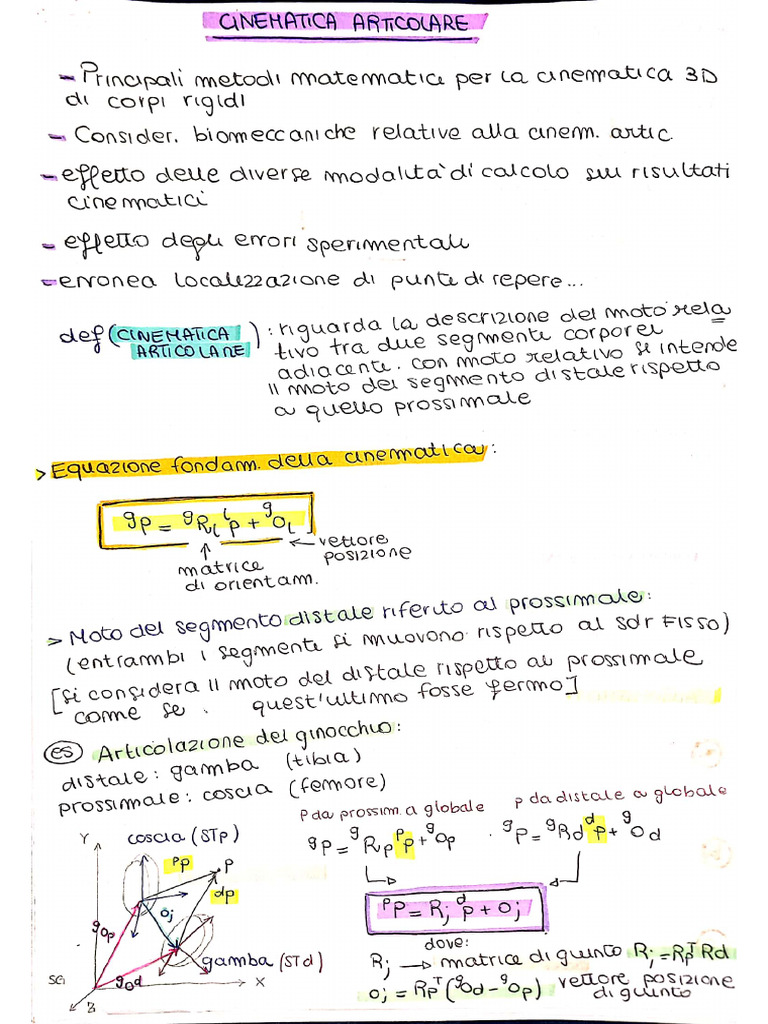 CINEMATICA ARTICOLARE
- Principali metodi matematici per la cinematica 3D
di corpi rigidi
- Consider. biomeccaniche relative alla cinem. artic
- effetto delle diverse modalità di calcolo sui risultati
cinematici
- effetto degli errori sperimentali
- erronea localizzazione di punti di repere...
def (CINEMATICA ARTICOLARE) : riguarda la descrizione del moto rela
tivo tra due segmenti corporei
adiacenti. con moto relativo si intende
il moto del segmento distale rispetto
a quello prossimale
> Equazione fondam. della cinematica:
ᵍP = ᵍRₗ ˡP + ᵍOₗ
↑ ← vettore
posizione
matrice
di orientam.
> Moto del segmento distale riferito al prossimale:
(entrambi i segmenti si muovono rispetto al sdr FISSO)
[si considera il moto del distale rispetto al prossimale
come se . quest'ultimo fosse fermo]
es Articolazione del ginocchio:
distale: gamba (tibia)
prossimale: coscia (femore)
P da prossim. a globale P da distale a globale
ᵍP = ᵍRp ᵖP + ᵍOp . ᵍP = ᵍRd ᵈP + ᵍOd
ᵖP = Rj ᵈP + Oj
dove:
Rj → matrice di giunto Rj = RpᵀRd
Oj = Rpᵀ(ᵍOd - ᵍOp) vettore posizione
di giunto
Y coscia (STp)
ᵖP P
dP
Oj
ᵍOp
gamba (STd)
SG ᵍOd X
Z